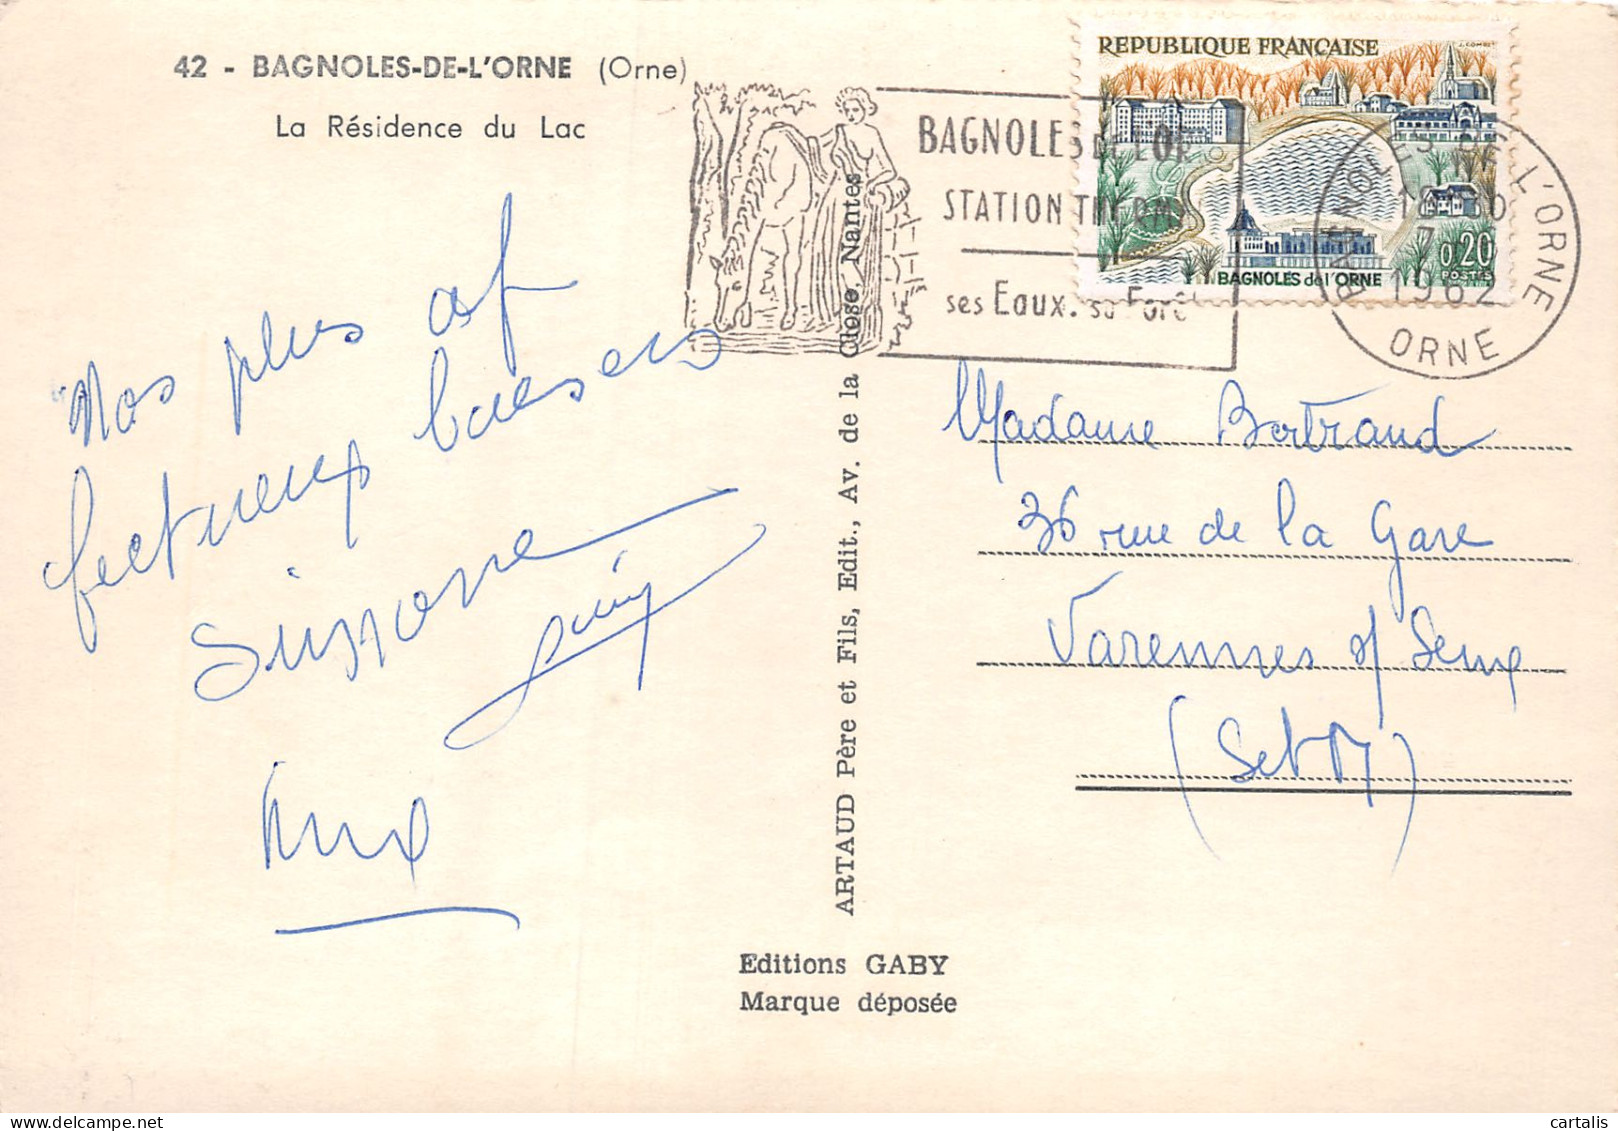 42 - BAGNOLES-DE-L'ORNE (Orne)
La Résidence du Lac
Nos plus af
fectueux baisers
Simone
BAGNOLES DE L'OR
STATION THERM
ses Eaux. sa Forêt
REPUBLIQUE FRANÇAISE
J. COMBET
BAGNOLES de l'ORNE
0,20
POSTES
BAGNOLES DE L'ORNE
1962
ORNE
ARTAUD Père et Fils, Edit., Av. de la Close, Nantes
Madame Bertrand
36 rue de la Gare
Varennes s/ Seine
(Set M)
Editions GABY
Marque déposée
cartalis